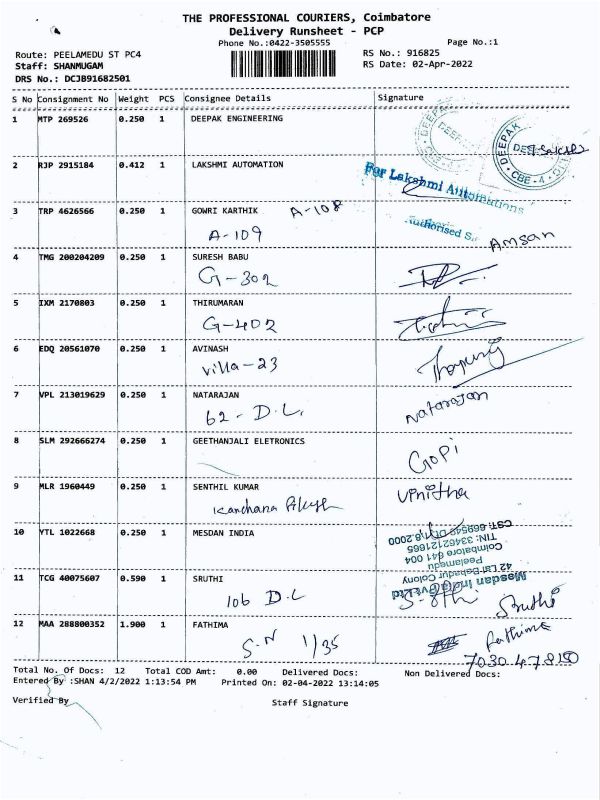 THE PROFESSIONAL COURIERS, Coimbatore
Delivery Runsheet - PCP
Phone No.:0422-3505555
Page No.:1
Route: PEELAMEDU ST PC4
RS No.: 916825
Staff: SHANMUGAM
RS Date: 02-Apr-2022
DRS No.: DCJB91682501
S No Consignment No Weight PCS Consignee Details Signature
1 MTP 269526 0.250 1 DEEPAK ENGINEERING
DEEPAK
CBE-4
2 RJP 2915184 0.412 1 LAKSHMI AUTOMATION
For Lakshmi Automations
Authorised
3 TRP 4626566 0.250 1 GOWRI KARTHIK A-108
A-109
Amsan
4 TMG 200204209 0.250 1 SURESH BABU
G-302
5 IXM 2170803 0.250 1 THIRUMARAN
G-402
6 EDQ 20561070 0.250 1 AVINASH
villa-23
7 VPL 213019629 0.250 1 NATARAJAN
62- D.L. Natarajan
8 SLM 292666274 0.250 1 GEETHANJALI ELETRONICS
Gopi
9 MLR 1960449 0.250 1 SENTHIL KUMAR
Kanchana
Vinitha
10 YTL 1022668 0.250 1 MESDAN INDIA
Mesdan India Pvt Ltd
42 Lal Bahadur Colony
Peelamedu
Coimbatore 641 004
TIN: 33462121665
11 TCG 40075607 0.590 1 SRUTHI
106 D.L
Sruthi
12 MAA 288800352 1.900 1 FATHIMA
S.N 1/35
Fathima
Total No. Of Docs: 12 Total COD Amt: 0.00 Delivered Docs: Non Delivered Docs:
Entered By :SHAN 4/2/2022 1:13:54 PM Printed On: 02-04-2022 13:14:05
Verified By
Staff Signature